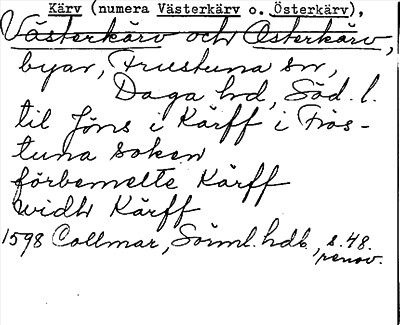 Kärv (numera Västerkärv o. Österkärv),
Västerkärv och Österkärv,
byar, Frustuna sn,
Daga hd, Söd. l.
til Jöns i Kärff i Fros-
tuna soken
förbemelte Kärff
widh Kärff
1598 Collmar, Sörml. hdb., s. 48.
renov.